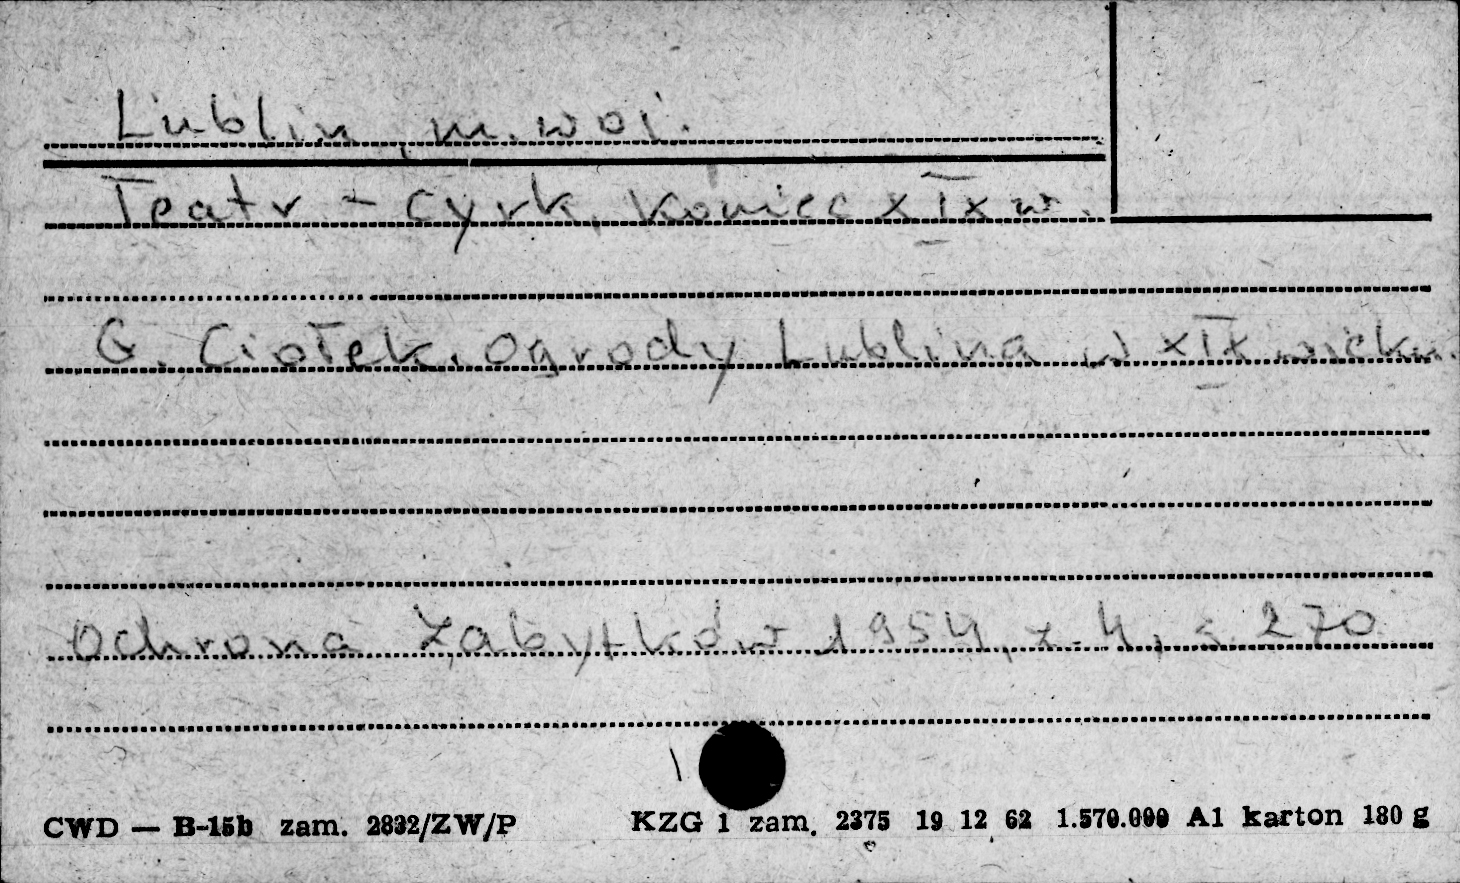 Lublin, m. woj.
Teatr - cyrk, koniec XIX w.
G. Ciołek. Ogrody Lublina w XIX wieku.
Ochrona Zabytków 1954, z. 4, s. 270
CWD — B-15b zam. 2832/ZW/P KZG 1 zam. 2375 19 12 62 1.570.000 A1 karton 180 g